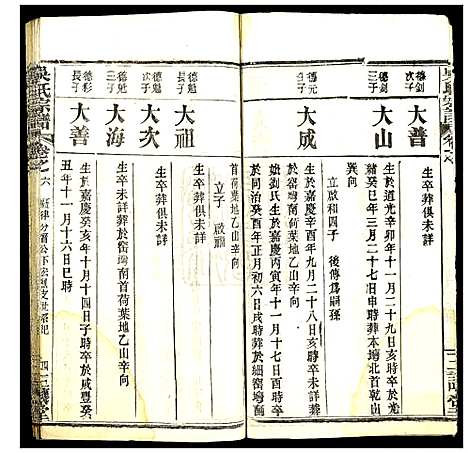 德釗
次子
大普
生卒葬俱未詳
德釗
三子
大山
生於道光辛卯年十一月二十九日亥時卒於光
緒癸巳年三月二十七日申時葬本塆北首乾山
巽向
德元
子
大成
立啟和四子 後傳爲嗣孫
生於嘉慶辛酉年九月二十八日亥時卒未詳葬
於窑塆南首荷葉地乙山辛向
娶劉氏生於嘉慶丙寅年十一月十七日酉時
於同治癸酉年正月初六日戌時卒葬於細窑塆
首荷葉地乙山辛向
立子 啟
德魁
長子
大祖
生卒葬俱未詳
德魁
次子
大次
生卒葬俱未詳
德魁
三子
大海
生卒未詳葬於窑塆南首荷葉地乙山辛向
德彩
長子
大善
生於嘉慶癸亥年十月十四日子時卒於咸豐癸
丑年十一月十六日巳時
吳氏宗譜
卷之六
四一